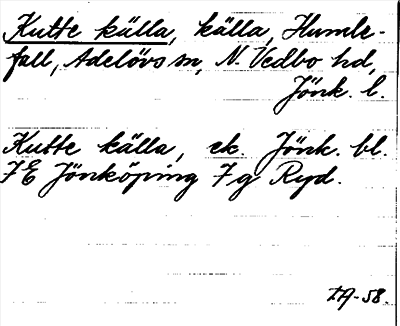 Kutte källa, källa, Humle-
fall, Adelövs sn, N. Vedbo hd,
Jönk. l.
Kutte källa, ek. Jönk. bl.
7E Jönköping 7g Ryd.
IA-58.